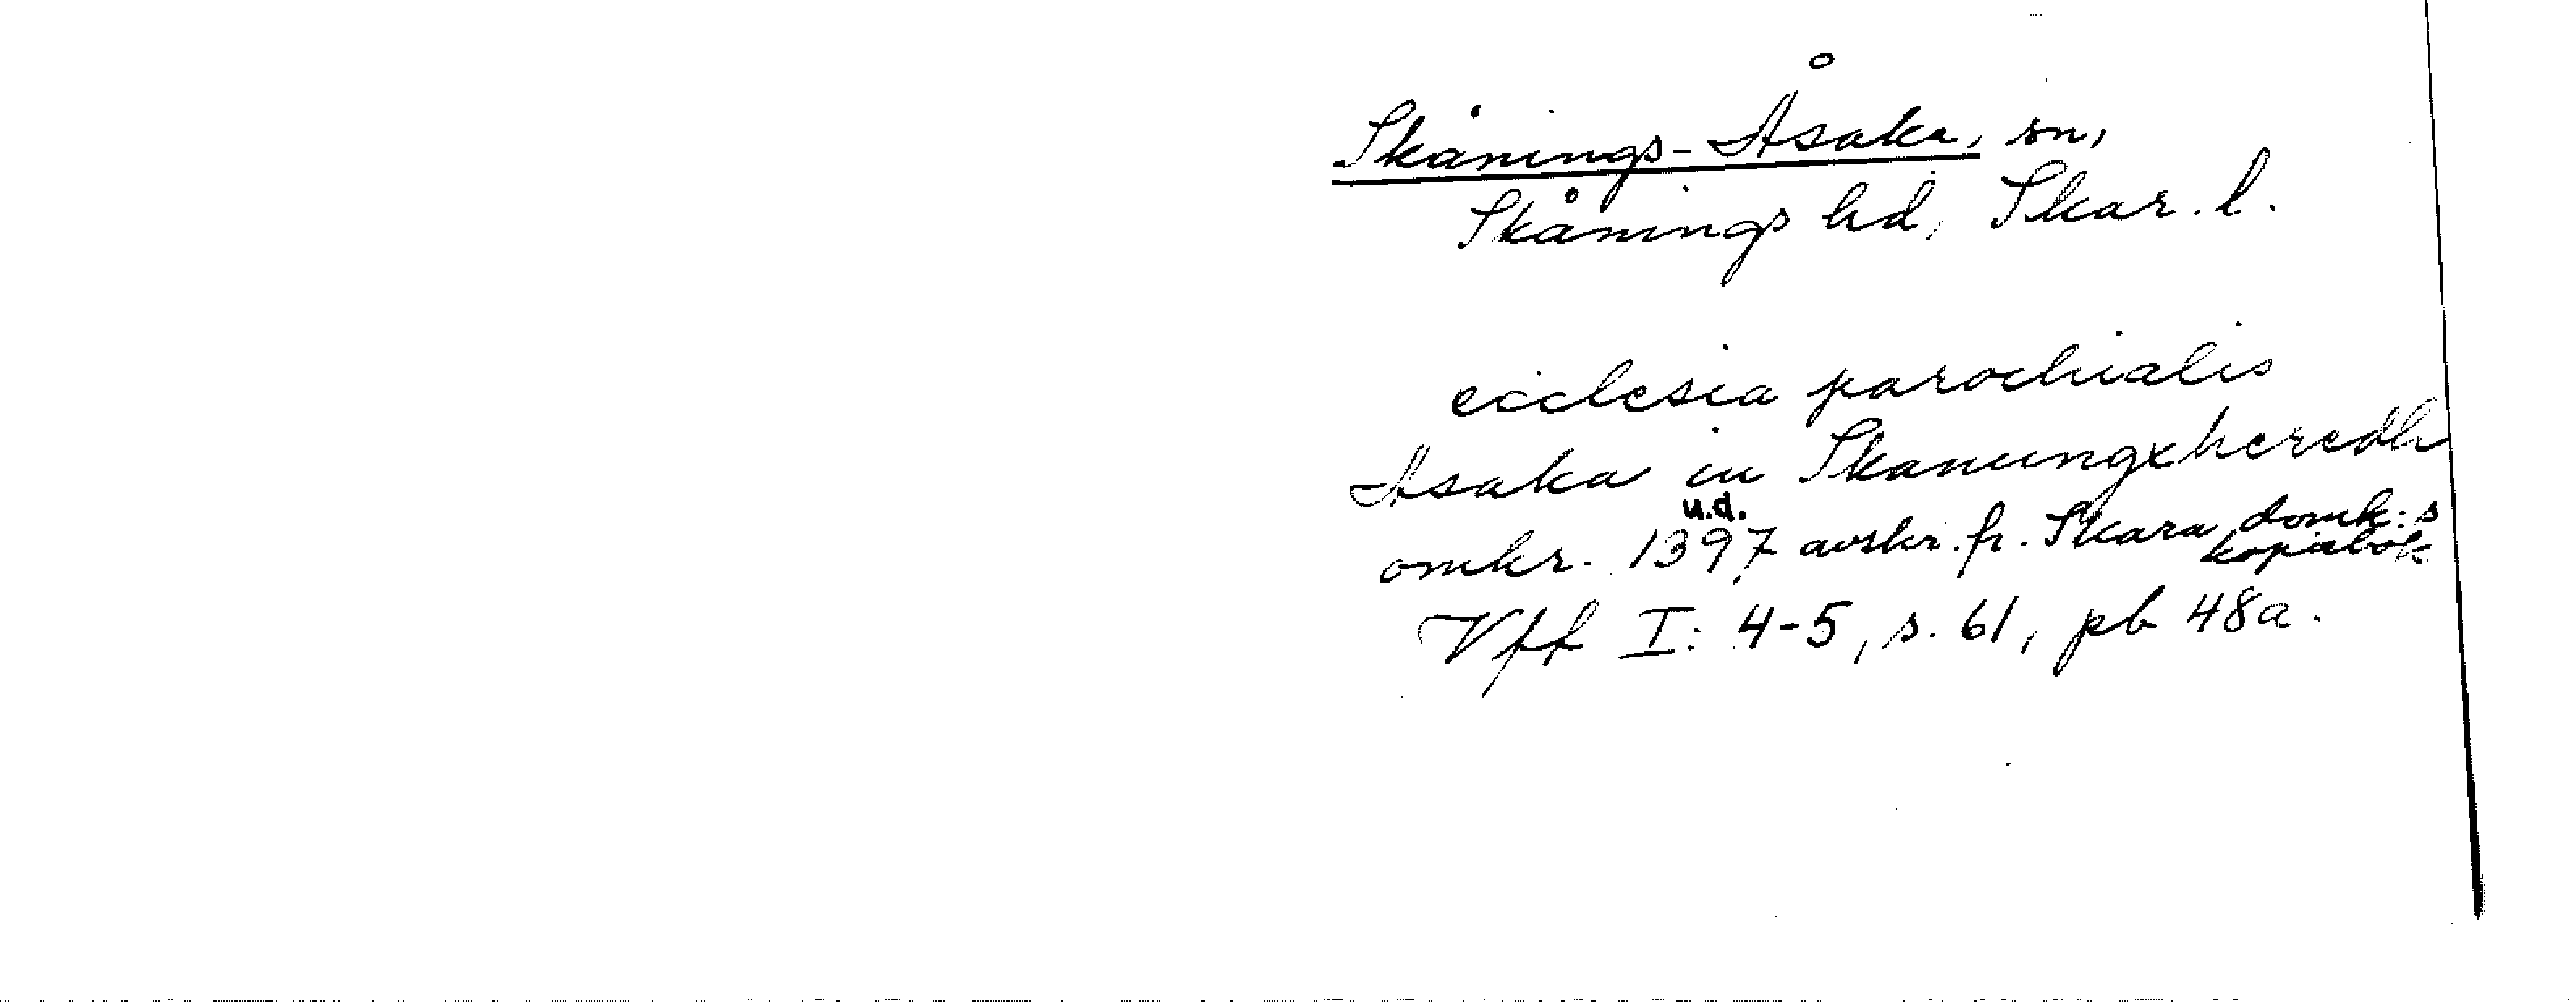 Skånings-Åsaka, sn,
Skånings hd, Skar. l.
ecclesia parochialis
Asaka in Skanungxheredh
u.d.
omkr. 1397 avskr. fr. Skara domk:s
kopiebok
Vff I: 4-5, s. 61, pb 48a.